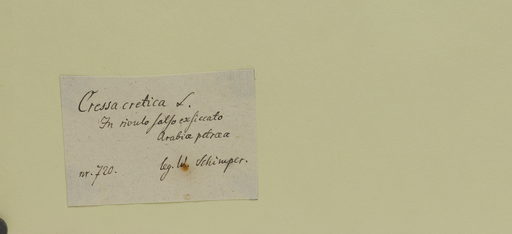 Cressa cretica L.
In rivulo salso exsiccato
Arabiæ petrææ
nr. 720. leg. W Schimper.